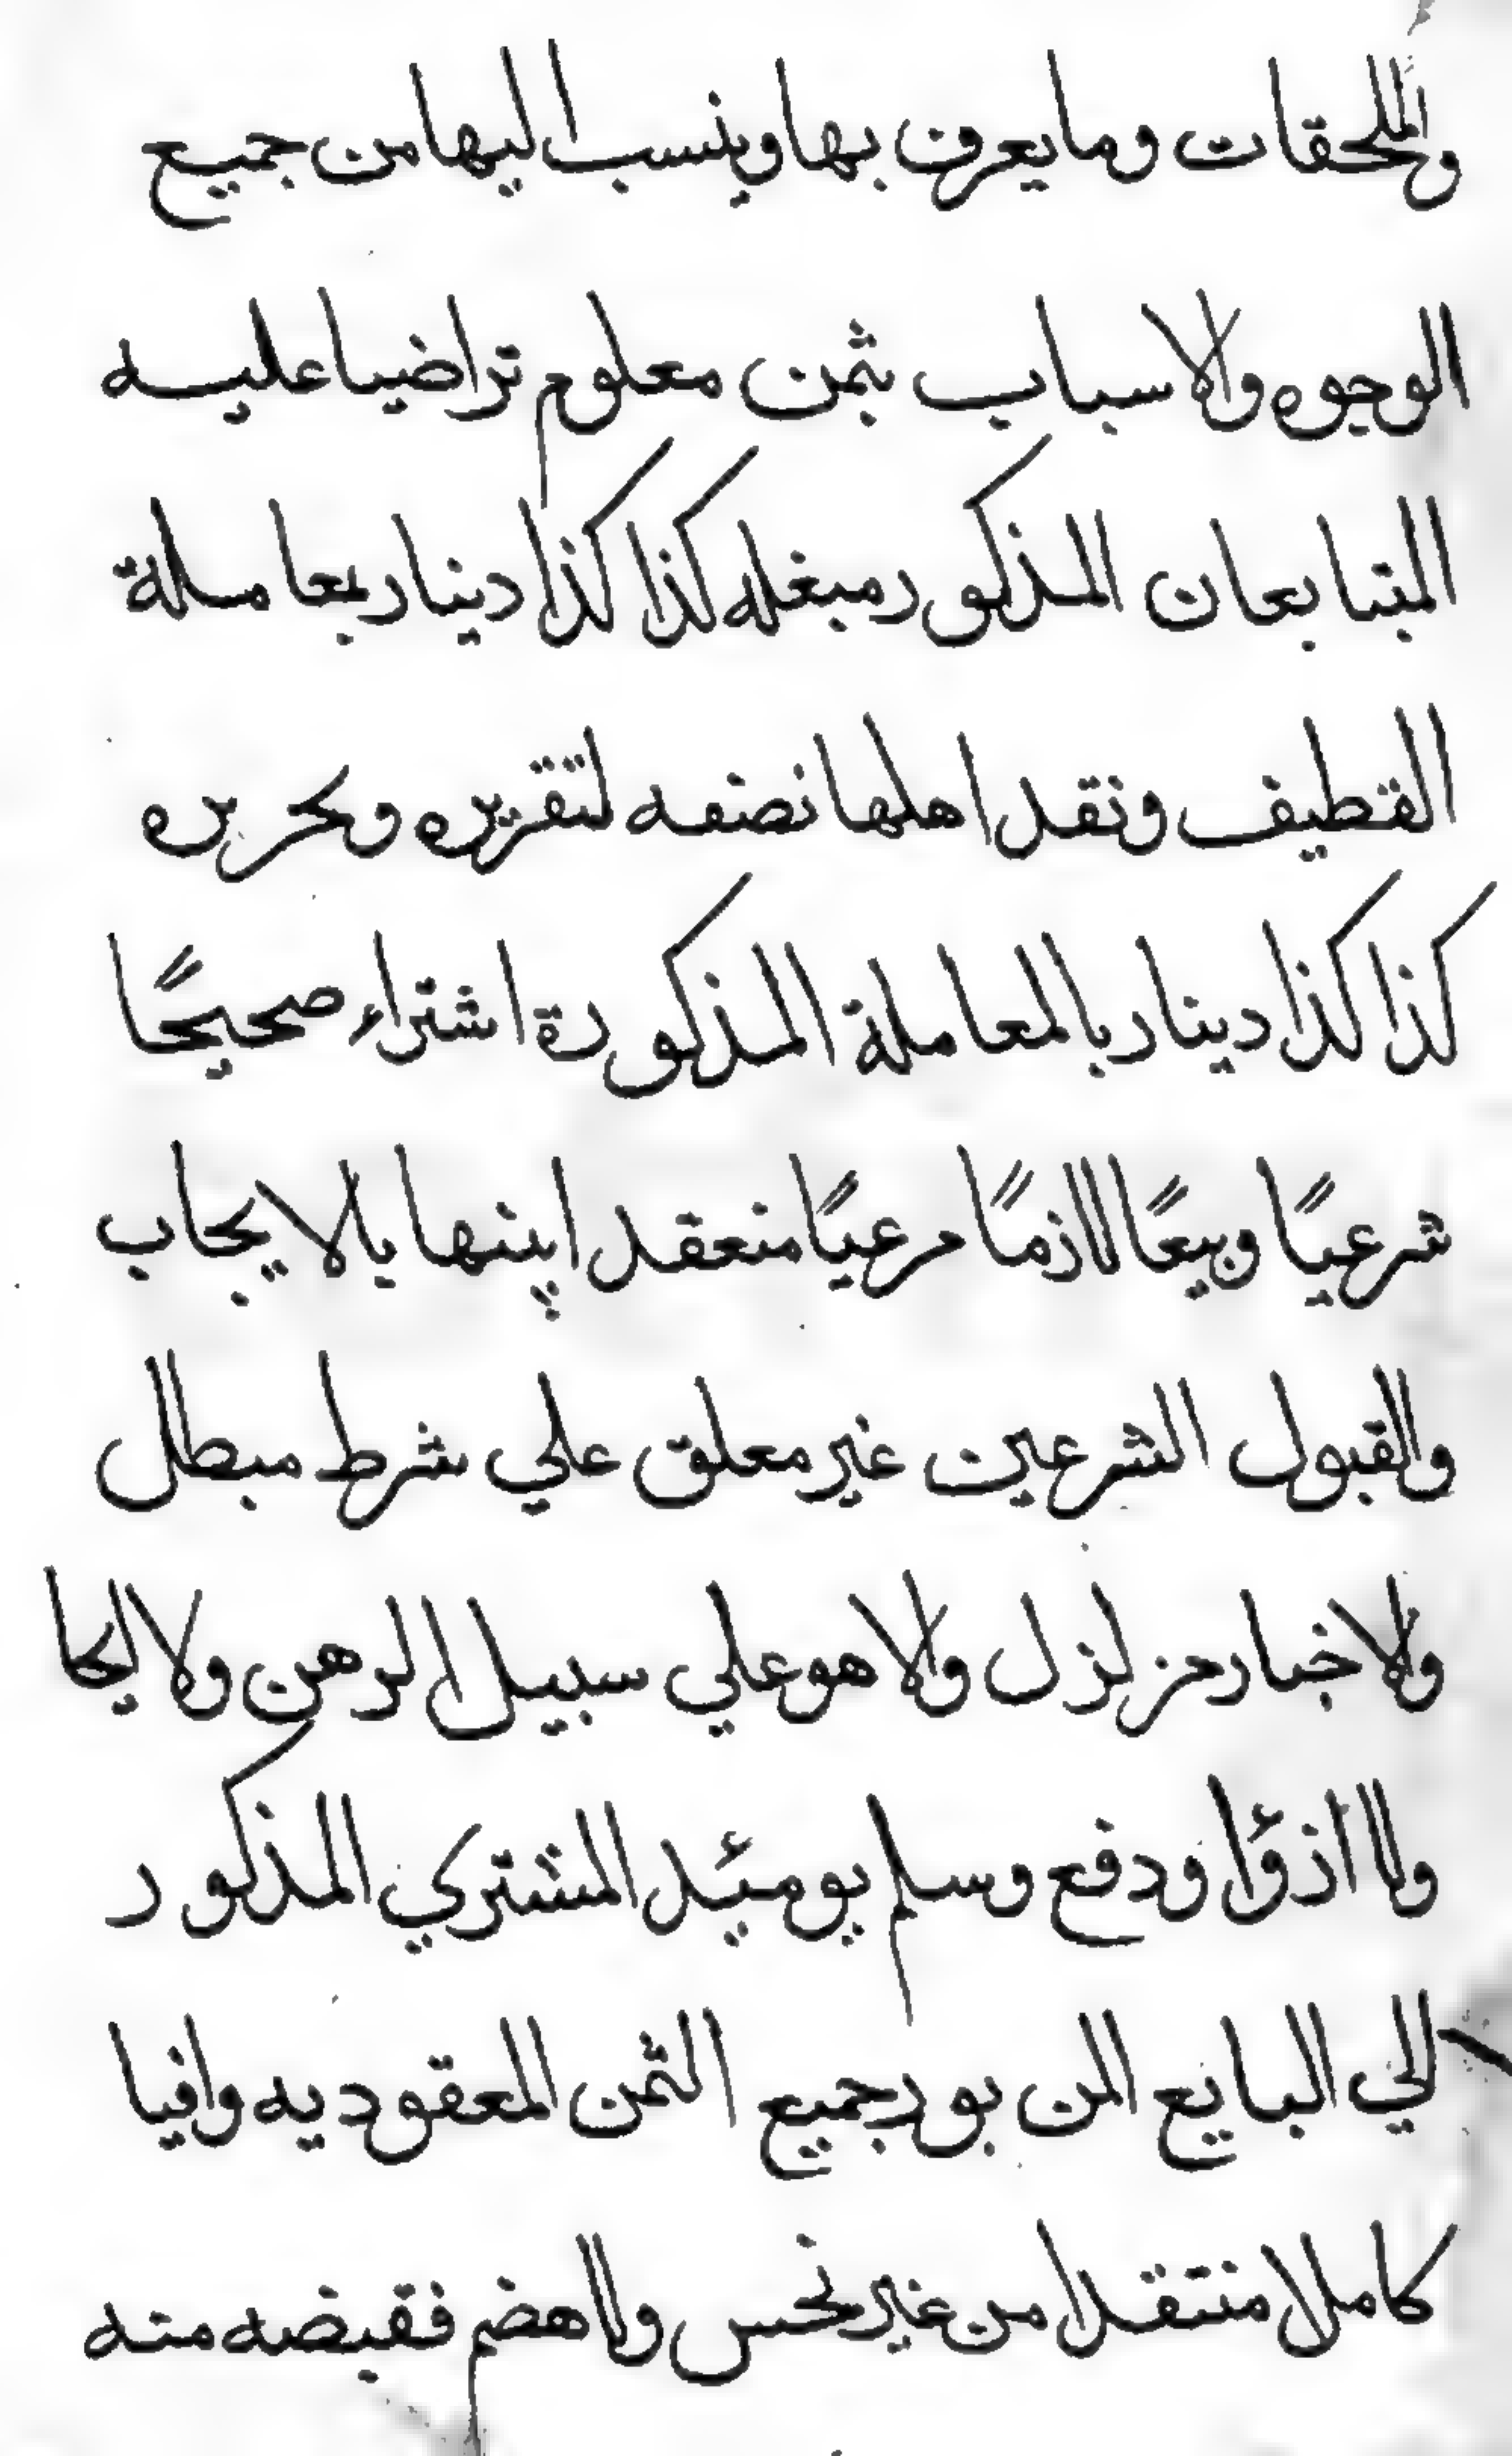 والملحقات وما يعرف بها وينسب اليها من جميع
الوجوه والاسباب بثمن معلوم تراضيا عليه
المتبايعان المذكور مبغله كذا كذا دينار بعاملة
القطيف ونقد اهلها نصفه لتقريره وتحريره
كذا كذا دينار بالمعاملة المذكورة اشتراء صحيحًا
شرعيًا وبيعًا لازمًا مرعيًا منعقد ابينها بالايجاب
والقبول الشرعين غير معلق علي شرط مبطل
ولاخبار مزلزل ولا هو علي سبيل الرهن ولا
ولا ودفع وسلم يومئد المشتري المذكور
الي البايع المن بور جميع الثمن المعقود به وافيا
كاملا منتقدا من غير نخس ولا هضم فقبضه منه